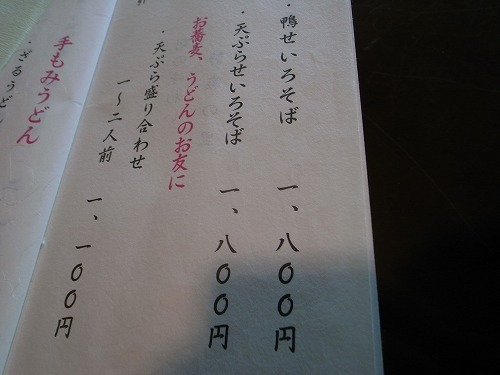 ・鴨せいろそば 一、八〇〇円
・天ぷらせいろそば 一、八〇〇円
お蕎麦、うどんのお友に
・天ぷら盛り合わせ
一～二人前 一、一〇〇円
手もみうどん
・ざるうどん